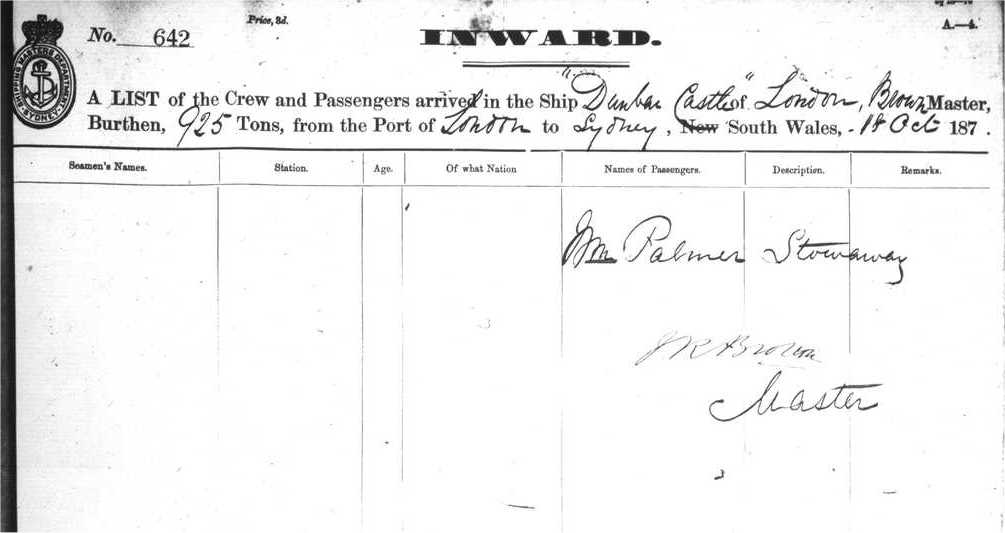 Price, 3d.
A.—4.
No. 642
INWARD.
SHIPPING MASTERS DEPARTMENT SYDNEY
A LIST of the Crew and Passengers arrived in the Ship "Dunbar Castle" of London, Brown Master,
Burthen, 925 Tons, from the Port of London to Sydney, New South Wales, 18 Oct 187 .
Seamen's Names. Station. Age. Of what Nation Names of Passengers. Description. Remarks.
Wm Palmer Stowaway
J R Brown
Master